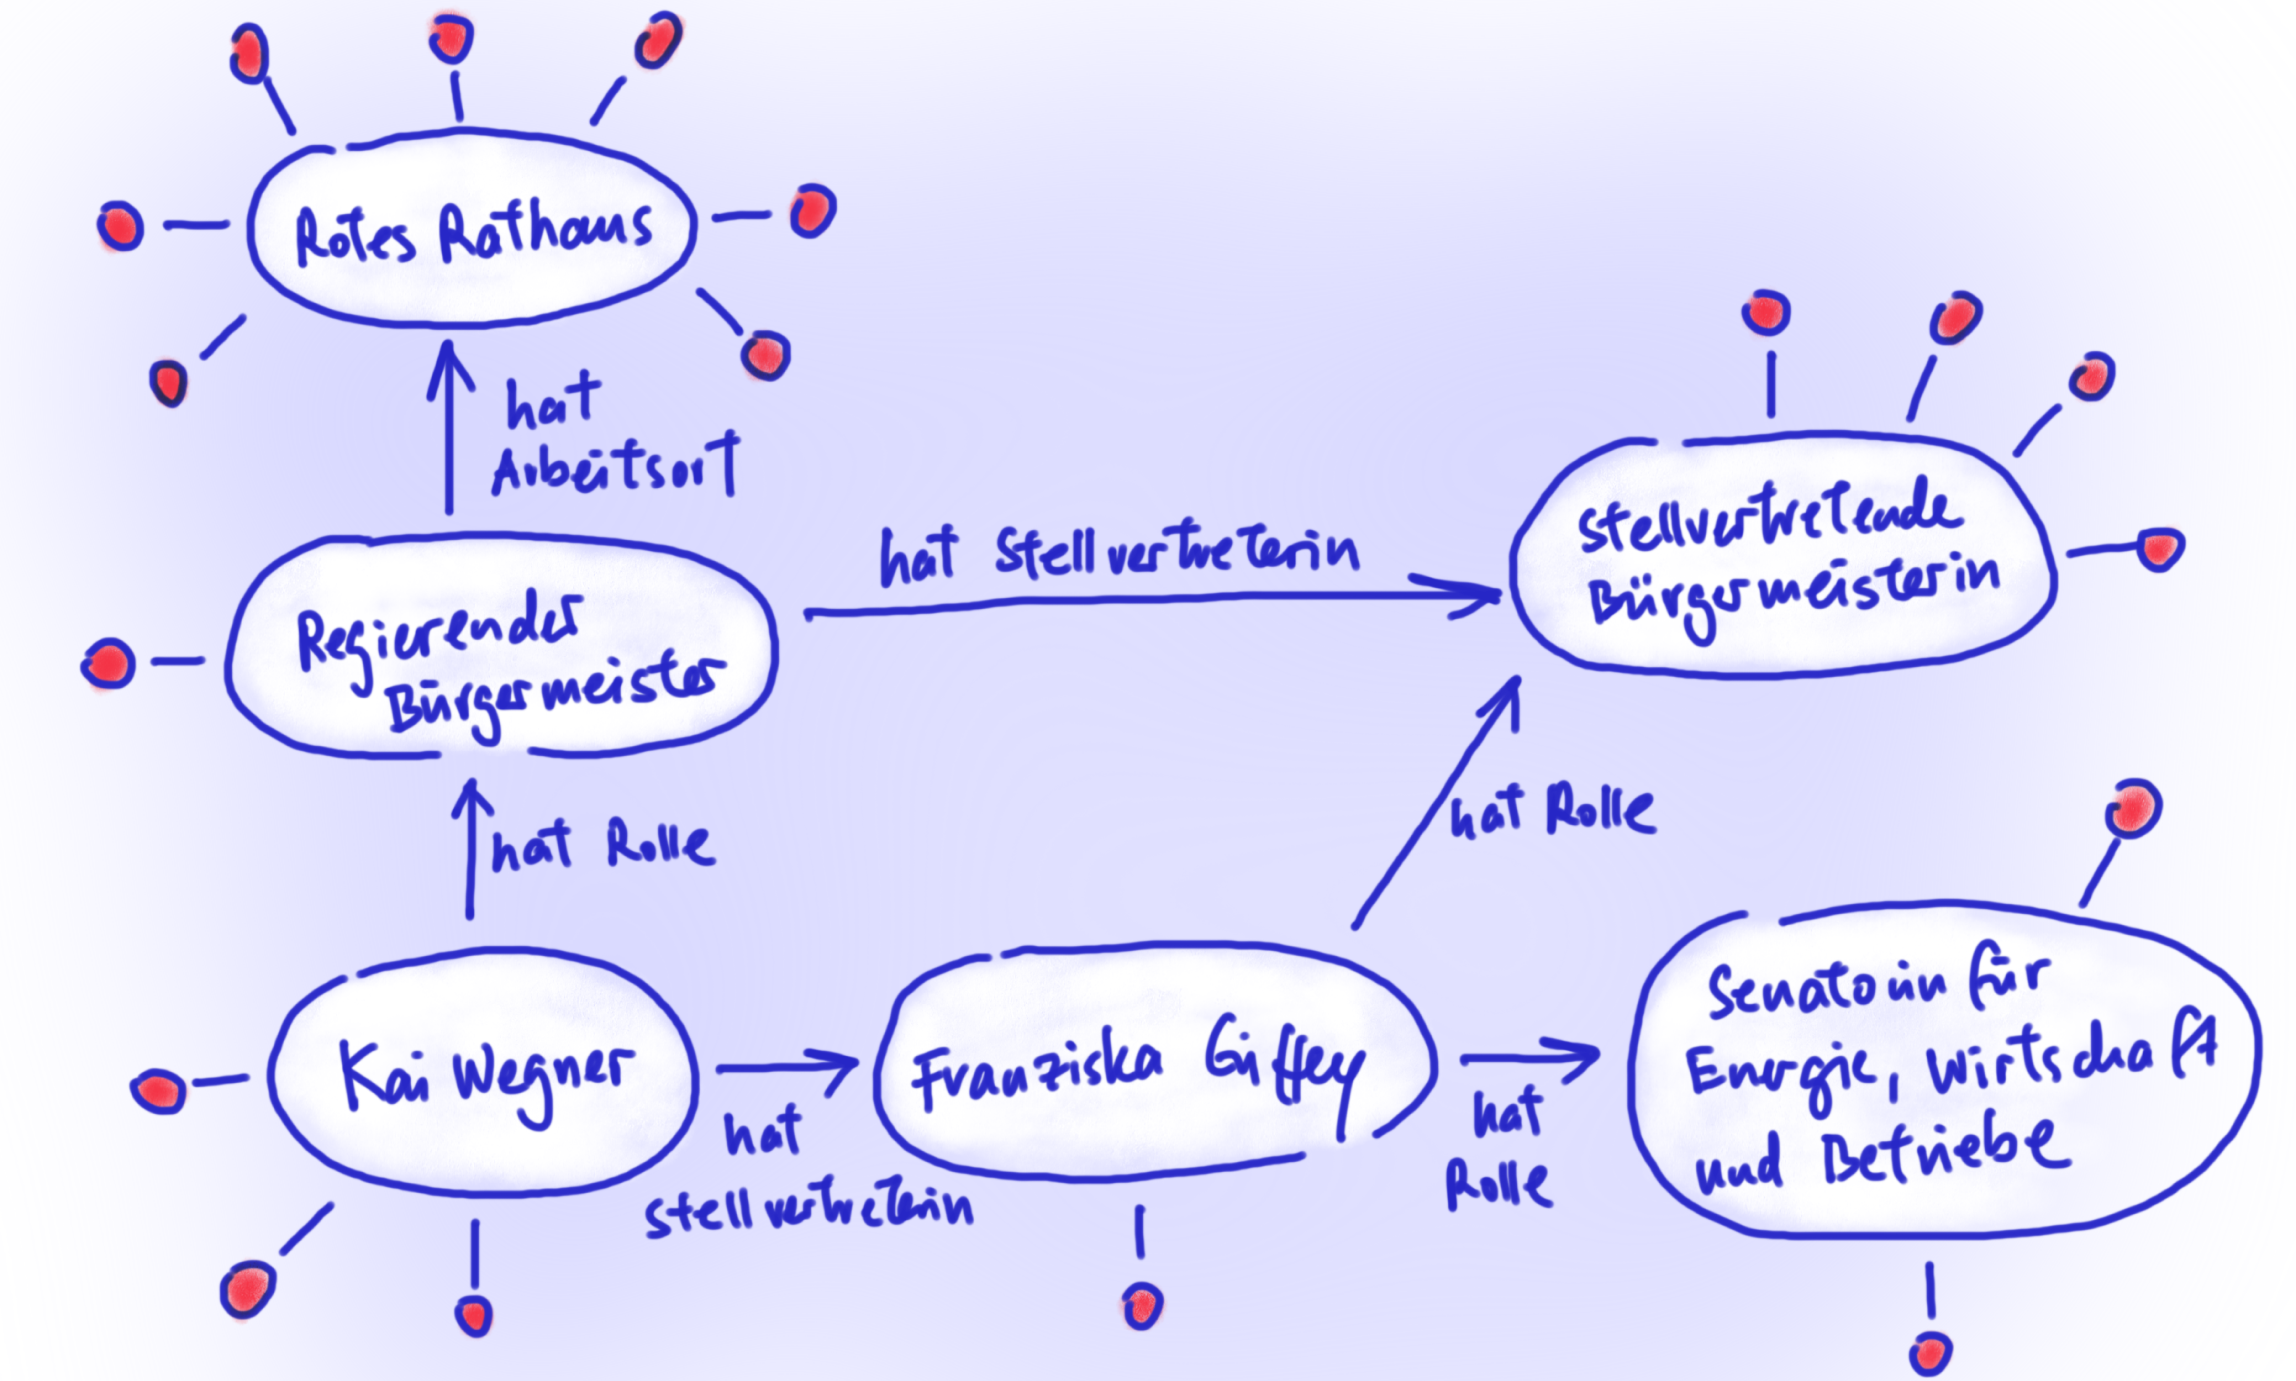 Rotes Rathaus
hat
Arbeitsort
Regierender
Bürgermeister
hat Stellvertreterin
stellvertretende
Bürgermeisterin
hat Rolle
hat Rolle
Kai Wegner
hat
stellvertreterin
Franziska Giffey
hat
Rolle
Senatorin für
Energie, Wirtschaft
und Betriebe